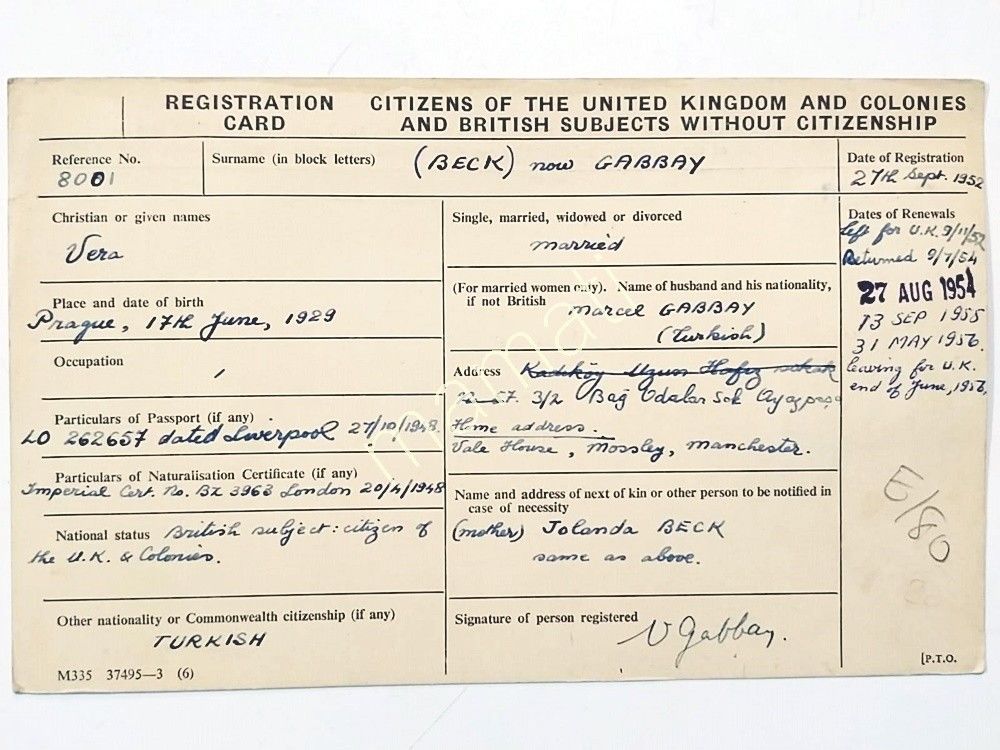 REGISTRATION CARD
CITIZENS OF THE UNITED KINGDOM AND COLONIES
AND BRITISH SUBJECTS WITHOUT CITIZENSHIP
Reference No.
8001
Surname (in block letters) (BECK) now GABBAY
Date of Registration
27th Sept. 1952
Christian or given names
Vera
Place and date of birth
Prague, 17th June, 1929
Occupation
/
Particulars of Passport (if any)
LO 262657 dated Liverpool 27/10/1948.
Particulars of Naturalisation Certificate (if any)
Imperial Cert. No. BZ 3963 London 20/4/1948
National status British subject: citizen of
the U.K. & Colonies.
Other nationality or Commonwealth citizenship (if any)
TURKISH
M335 37495—3 (6)
Single, married, widowed or divorced
married
(For married women only). Name of husband and his nationality,
if not British
Marcel GABBAY
(Turkish)
Address Kadıköy Uzun Hafız sokak
57. 3/2 Bağ Odaları Sok Ayazpaşa
Home address.
Vale House, Mossley, Manchester.
Name and address of next of kin or other person to be notified in
case of necessity
(mother) Jolanda BECK
same as above.
Signature of person registered
V Gabbay.
Dates of Renewals
Left for U.K. 9/11/52
Returned 9/7/54
27 AUG 1954
13 SEP 1955
31 MAY 1956.
leaving for U.K.
end of June, 1956.
E/80
[P.T.O.